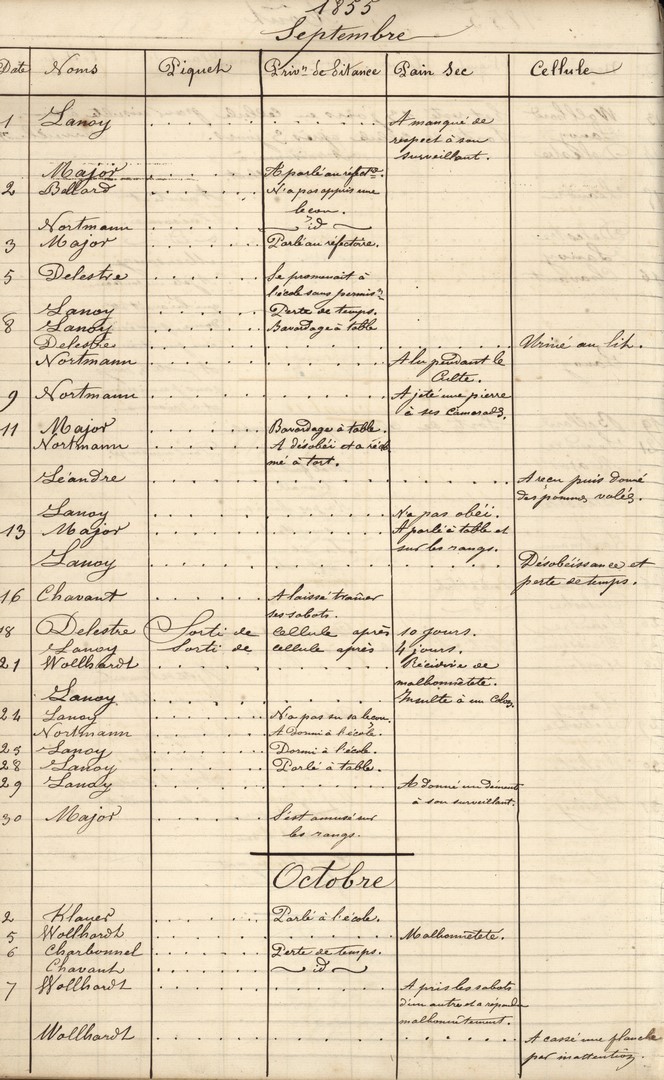 1855
Septembre
Date Noms Piquet Priv.n de Pitance Pain Sec Cellule
1 Lanoy A manqué de
respect à son
surveillant.
Major A parlé au réfect.re
2 Billard N'a pas appris une
leçon.
Nortmann id
3 Major Parlé au réfectoire.
5 Delestre Se promenait à
l'école sans permis.n
Lanoy Perte de temps.
8 Lanoy Bavardage à table
Delestre Uriné au lit.
Nortmann A lu pendant le
Culte.
9 Nortmann A jeté une pierre
à ses Camarades.
11 Major Bavardage à table.
Nortmann A désobéi et a récla
mé à tort.
Léandre A reçu puis donné
des pommes volées.
Lanoy N'a pas obéi.
13 Major A parlé à table et
sur les rangs.
Lanoy Désobéissance et
perte de temps.
16 Chavant A laissé traîner
ses sabots.
18 Delestre Sorti de Cellule après 10 jours.
Lanoy Sorti de cellule après 4 jours.
21 Wollhardt Récidive de
malhonnêteté.
Lanoy Insulte à un Colon.
24 Lanoy N'a pas su sa leçon.
Nortmann A Dormi à l'école.
25 Lanoy Dormi à l'école.
28 Lanoy Parlé à table.
29 Lanoy A donné un démenti
à son surveillant.
30 Major S'est amusé sur
les rangs.
Octobre
2 Klauer Parlé à l'école.
5 Wollhardt Malhonnêteté.
6 Charbonnel Perte de temps.
Chavant id
7 Wollhardt A pris les sabots
d'un autre et a répondu
malhonnêtement.
Wollhardt A cassé une planche
par inattention.